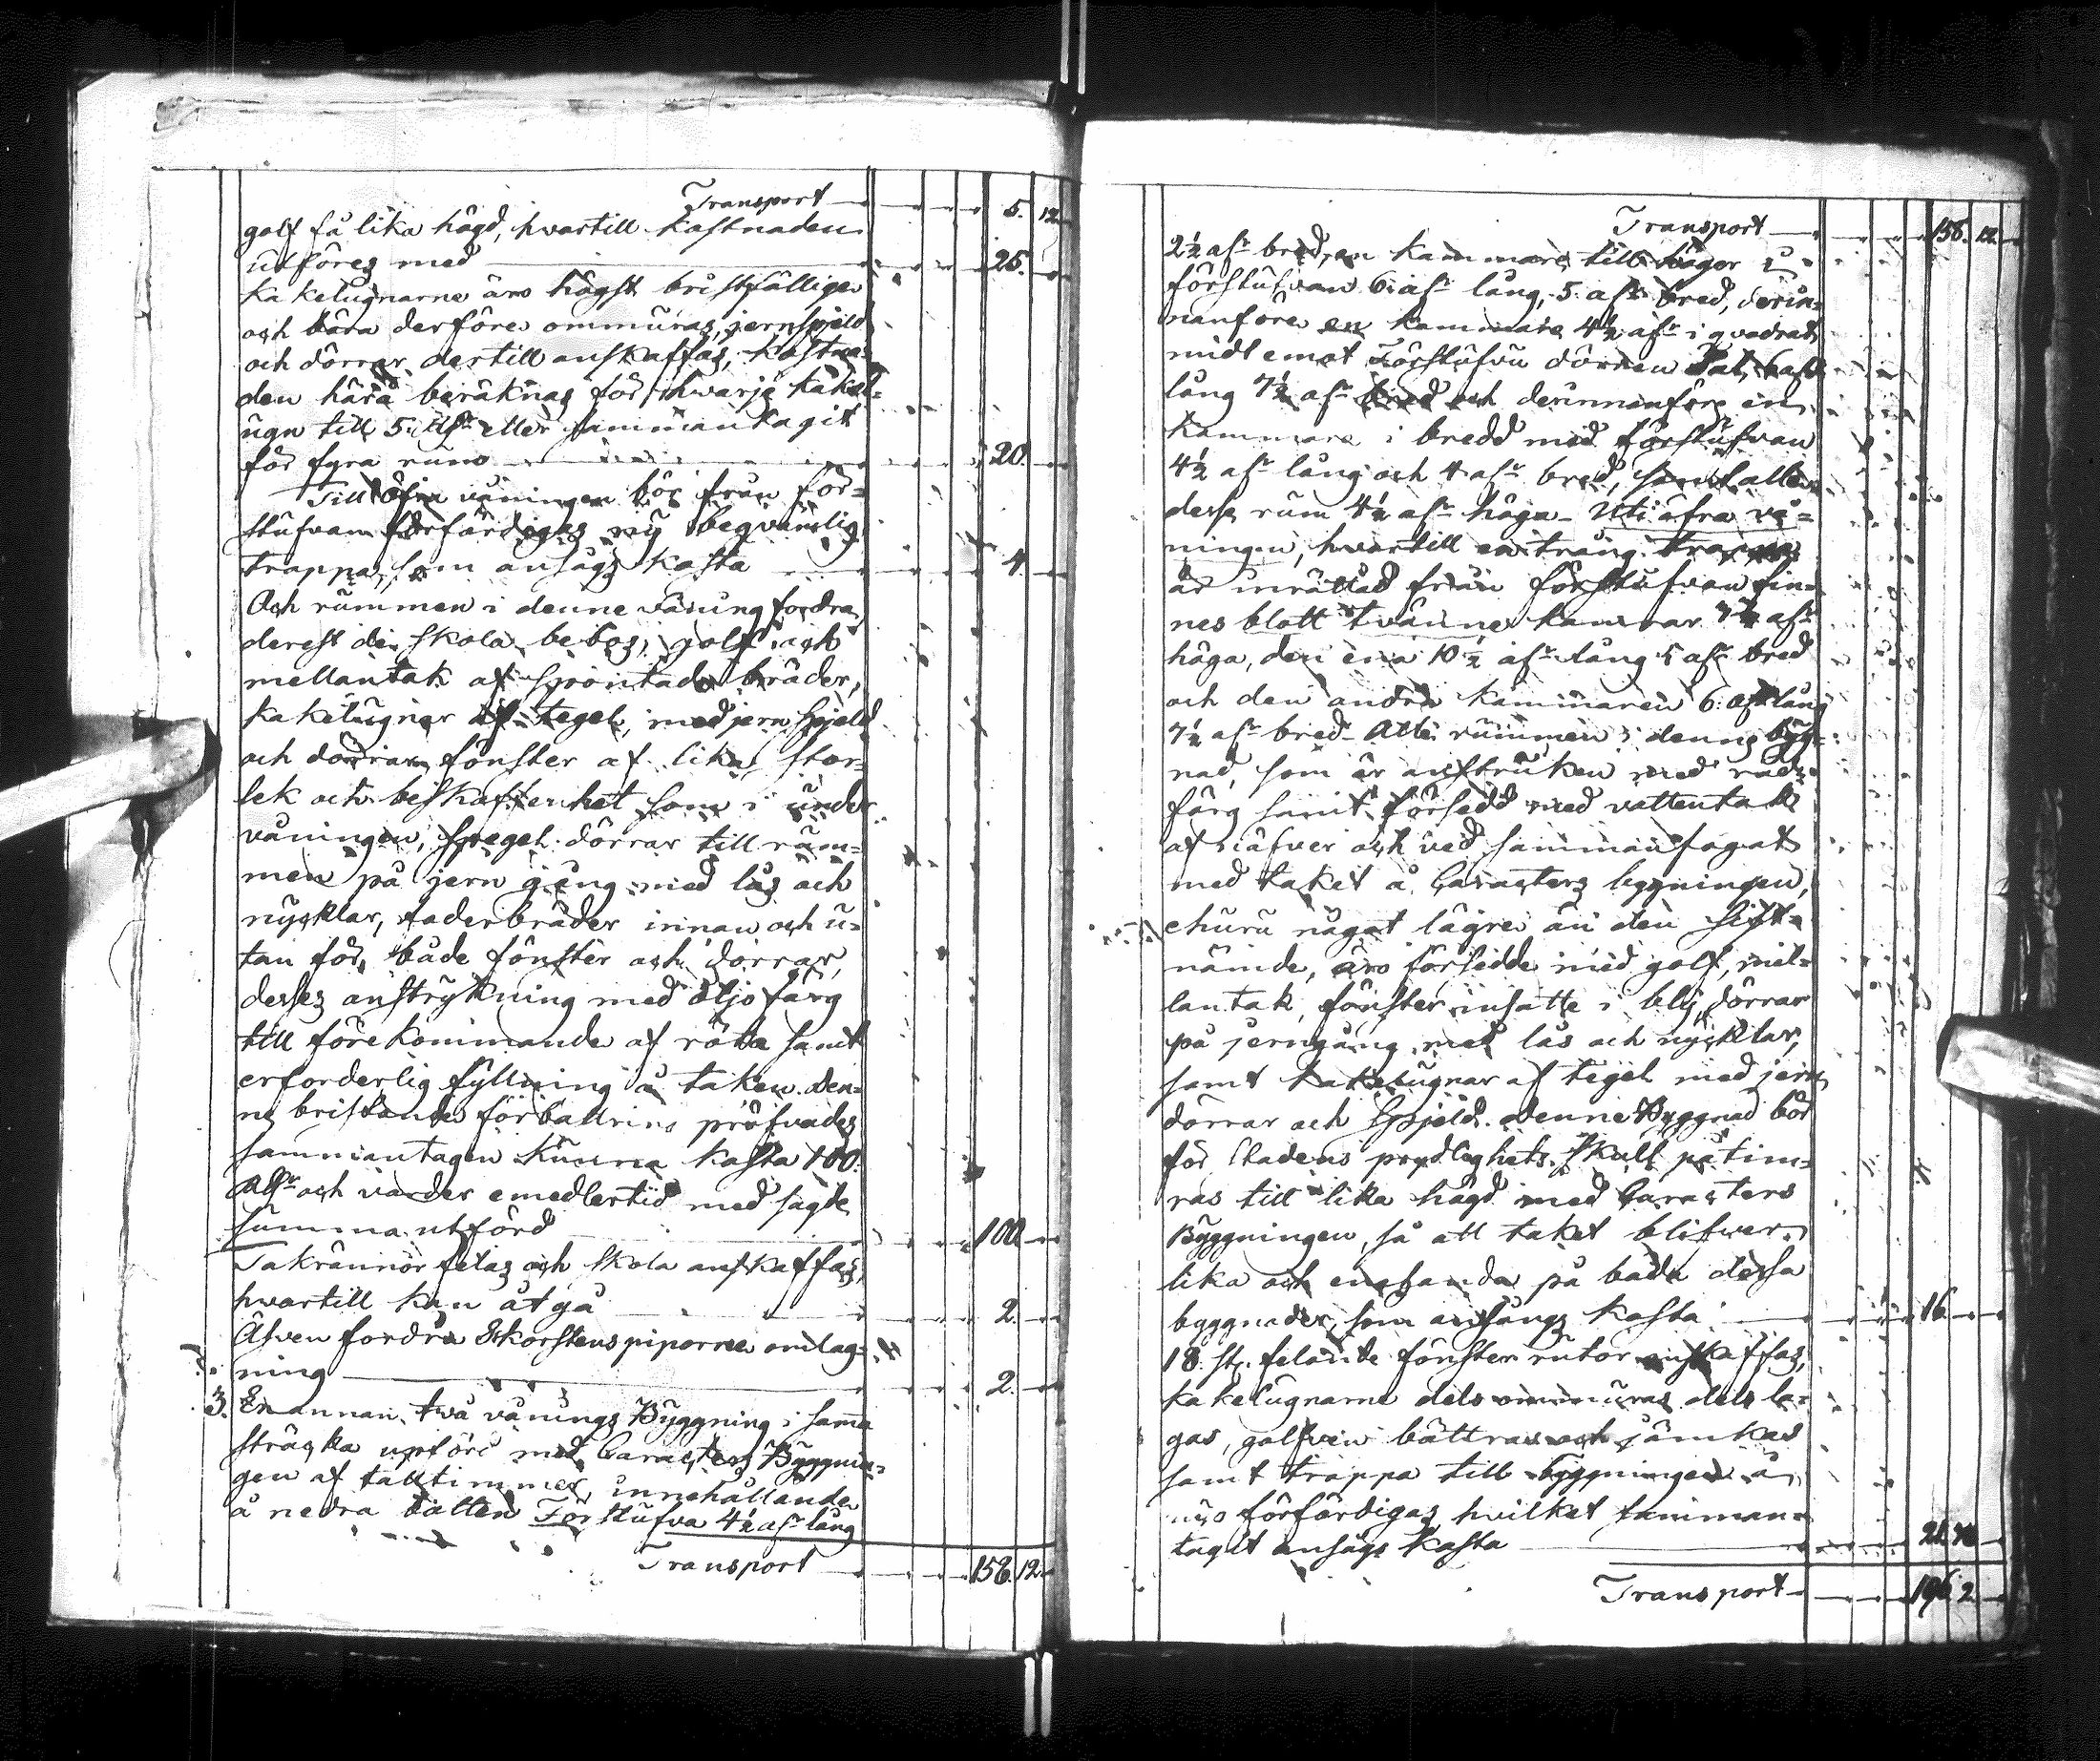 Transport 5. 12.
golf få lika högd, hvartill kostnaden
utföres med 25.
Kakelugnarne äro högst bristfällige
och böra derföre ommuras, jernspjeld
och dörrar dertill anskaffas, kostna-
den härå beräknas för hvarje kakel-
ugn till 5: eller sammantagit
för fyra rum 20.
Till öfra våningen bör från för-
stufvan förfärdigas ny beqvämlig
trappa, som ansågs kosta 4.
Och rummen i denne våning fordra,
derest de skola bebos, golf och
mellantak af spontade bräder,
kakelugnar af tegel, med jern spjeld
och dörrar, fönster af lika stor-
lek och beskaffenhet som i under
våningen, spegel dörrar till rum-
men på jern gång med lås och
nycklar, foderbräder innan och u-
tan för, både fönster och dörrar,
desses anstrykning med öljo färg
till förekommande af röta samt
erforderlig fyllning å taken. Den-
ne bristande förbättring pröfvades
sammantagen kunna kosta 100.
och varder emedlertid med sagde
summa utförd 100.
Takrännor felas och skola anskaffas,
hvartill kan åtgå 2.
Äfven fordra Skorstenspiporne omlag-
ning 2.
3. En annan två vånings Byggning i samma
sträcka upförd med Caracters Byggnin-
gen af talltimmer, innehållande
å nedra batten Förstufva 4½ alr lång
Transport 158. 12.
Transport 158. 12.
2½ alr bred, en kammare till höger i
förstufvan 6: alr lång, 5 alr bred, derin-
nanföre en kammare 4½ alr i qvadrat,
midt emot Förstufvu dörren Sal, 6 alr
lång 7½ alr bred och derinnanföre en
kammare i bredd med förstufvan
4½ alr lång och 4 alr bred, samt alla
desse rum 4½ alr höga. Uti öfra vå-
ningen, hvartill en trång trappa
är inrättad från förstufvan fin-
nes blott tvänne kamrar alr
höga, den ena 10½ alr lång 5 alr bred
och den andra kammaren 6: alr lång
7½ alr bred. Alla rummen i denne byg-
nad, som är anstruken med röd-
färg samt försedd med vattentak
af näfver och ved, sammanfogat
med taket å Caracters bygningen,
ehuru något lägre än den sist-
nämde, äro försedde med golf, mel-
lantak, fönster insatte i bly, dörrar
på jerngång med lås och nycklar,
samt kakelugnar af tegel med jern
dörrar och spjeld. Denne Byggnad bör
för Stadens prydlighets skull påtim-
ras till lika högd med Caracters
Byggningen, så att taket blifver
lika och enahanda på båda dessa
byggnader, som ansågs kosta 16.
18. st. felande fönster rutor anskaffas,
kakelugnarne dels ommuras dels la-
gas, golfven bättras och jämkas
samt trappa till byggningen å
nyo förfärdigas hvilket samman-
tagit ansågs kosta 21.
Transport 196. 2.